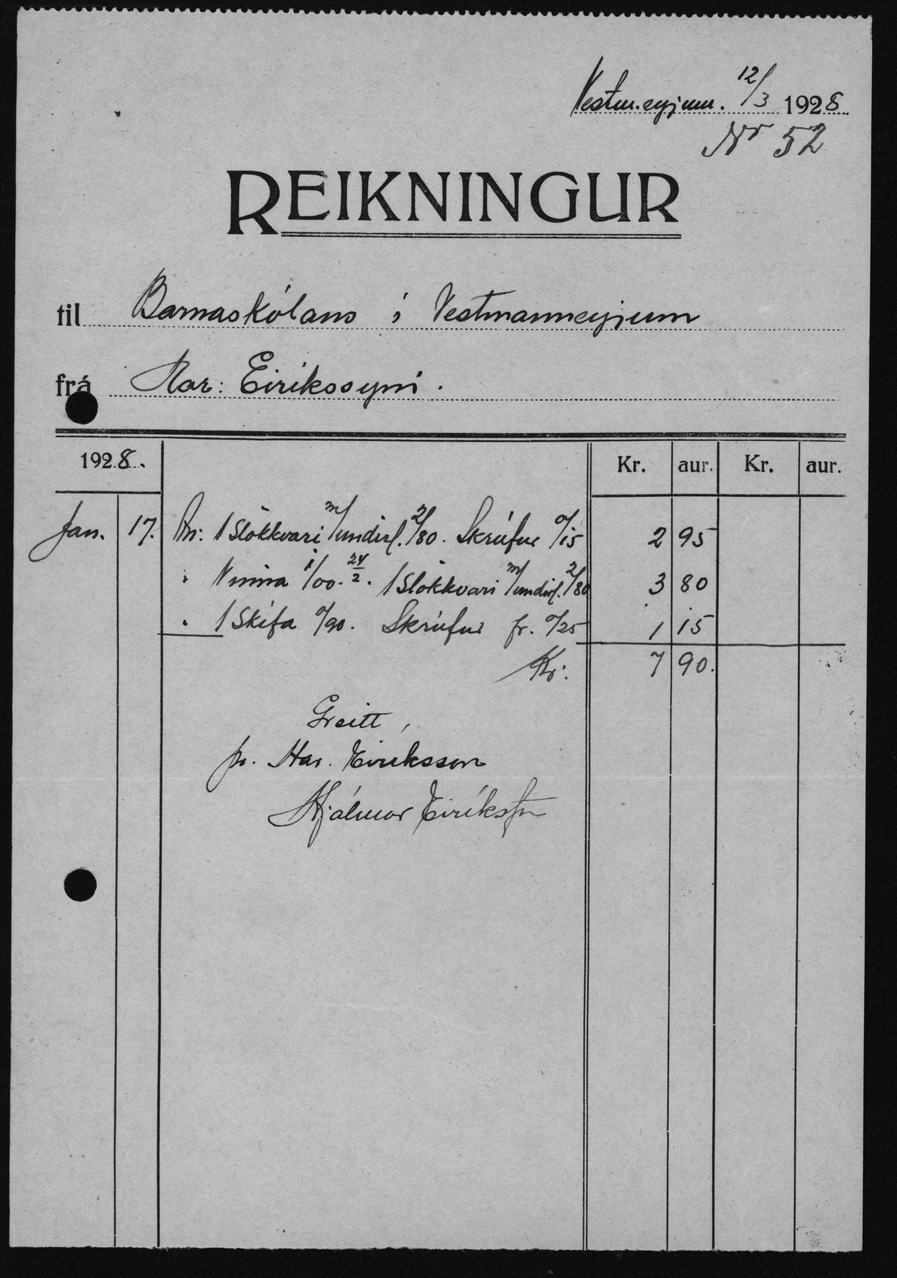 Vestm.eyjum. 12/3 1928
Nr 52
REIKNINGUR
til Barnaskólans í Vestmannaeyjum
frá Har: Eiríkssyni.
1928. Kr. aur. Kr. aur.
Jan. 17. An: 1 Slökkvari m/undirl. 2/80. Skrúfur 0/15 2 95
" Vinna 1/00. 24/2. 1 Slökkvari m/undirl. 2/80 3 80
" 1 Skífa 0/90. Skrúfur fr. 0/25 1 15
Kr. 7 90.
Greitt,
pr. Har. Eiríksson
Hjálmar Eiríksson